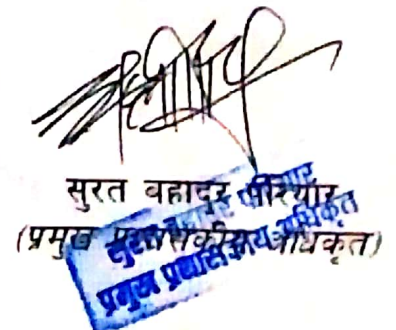 सुरत वहादुर परियार
(प्रमुख प्रशासकीय अधिकृत)
सुरत बहादुर परियार
प्रमुख प्रशासकीय अधिकृत